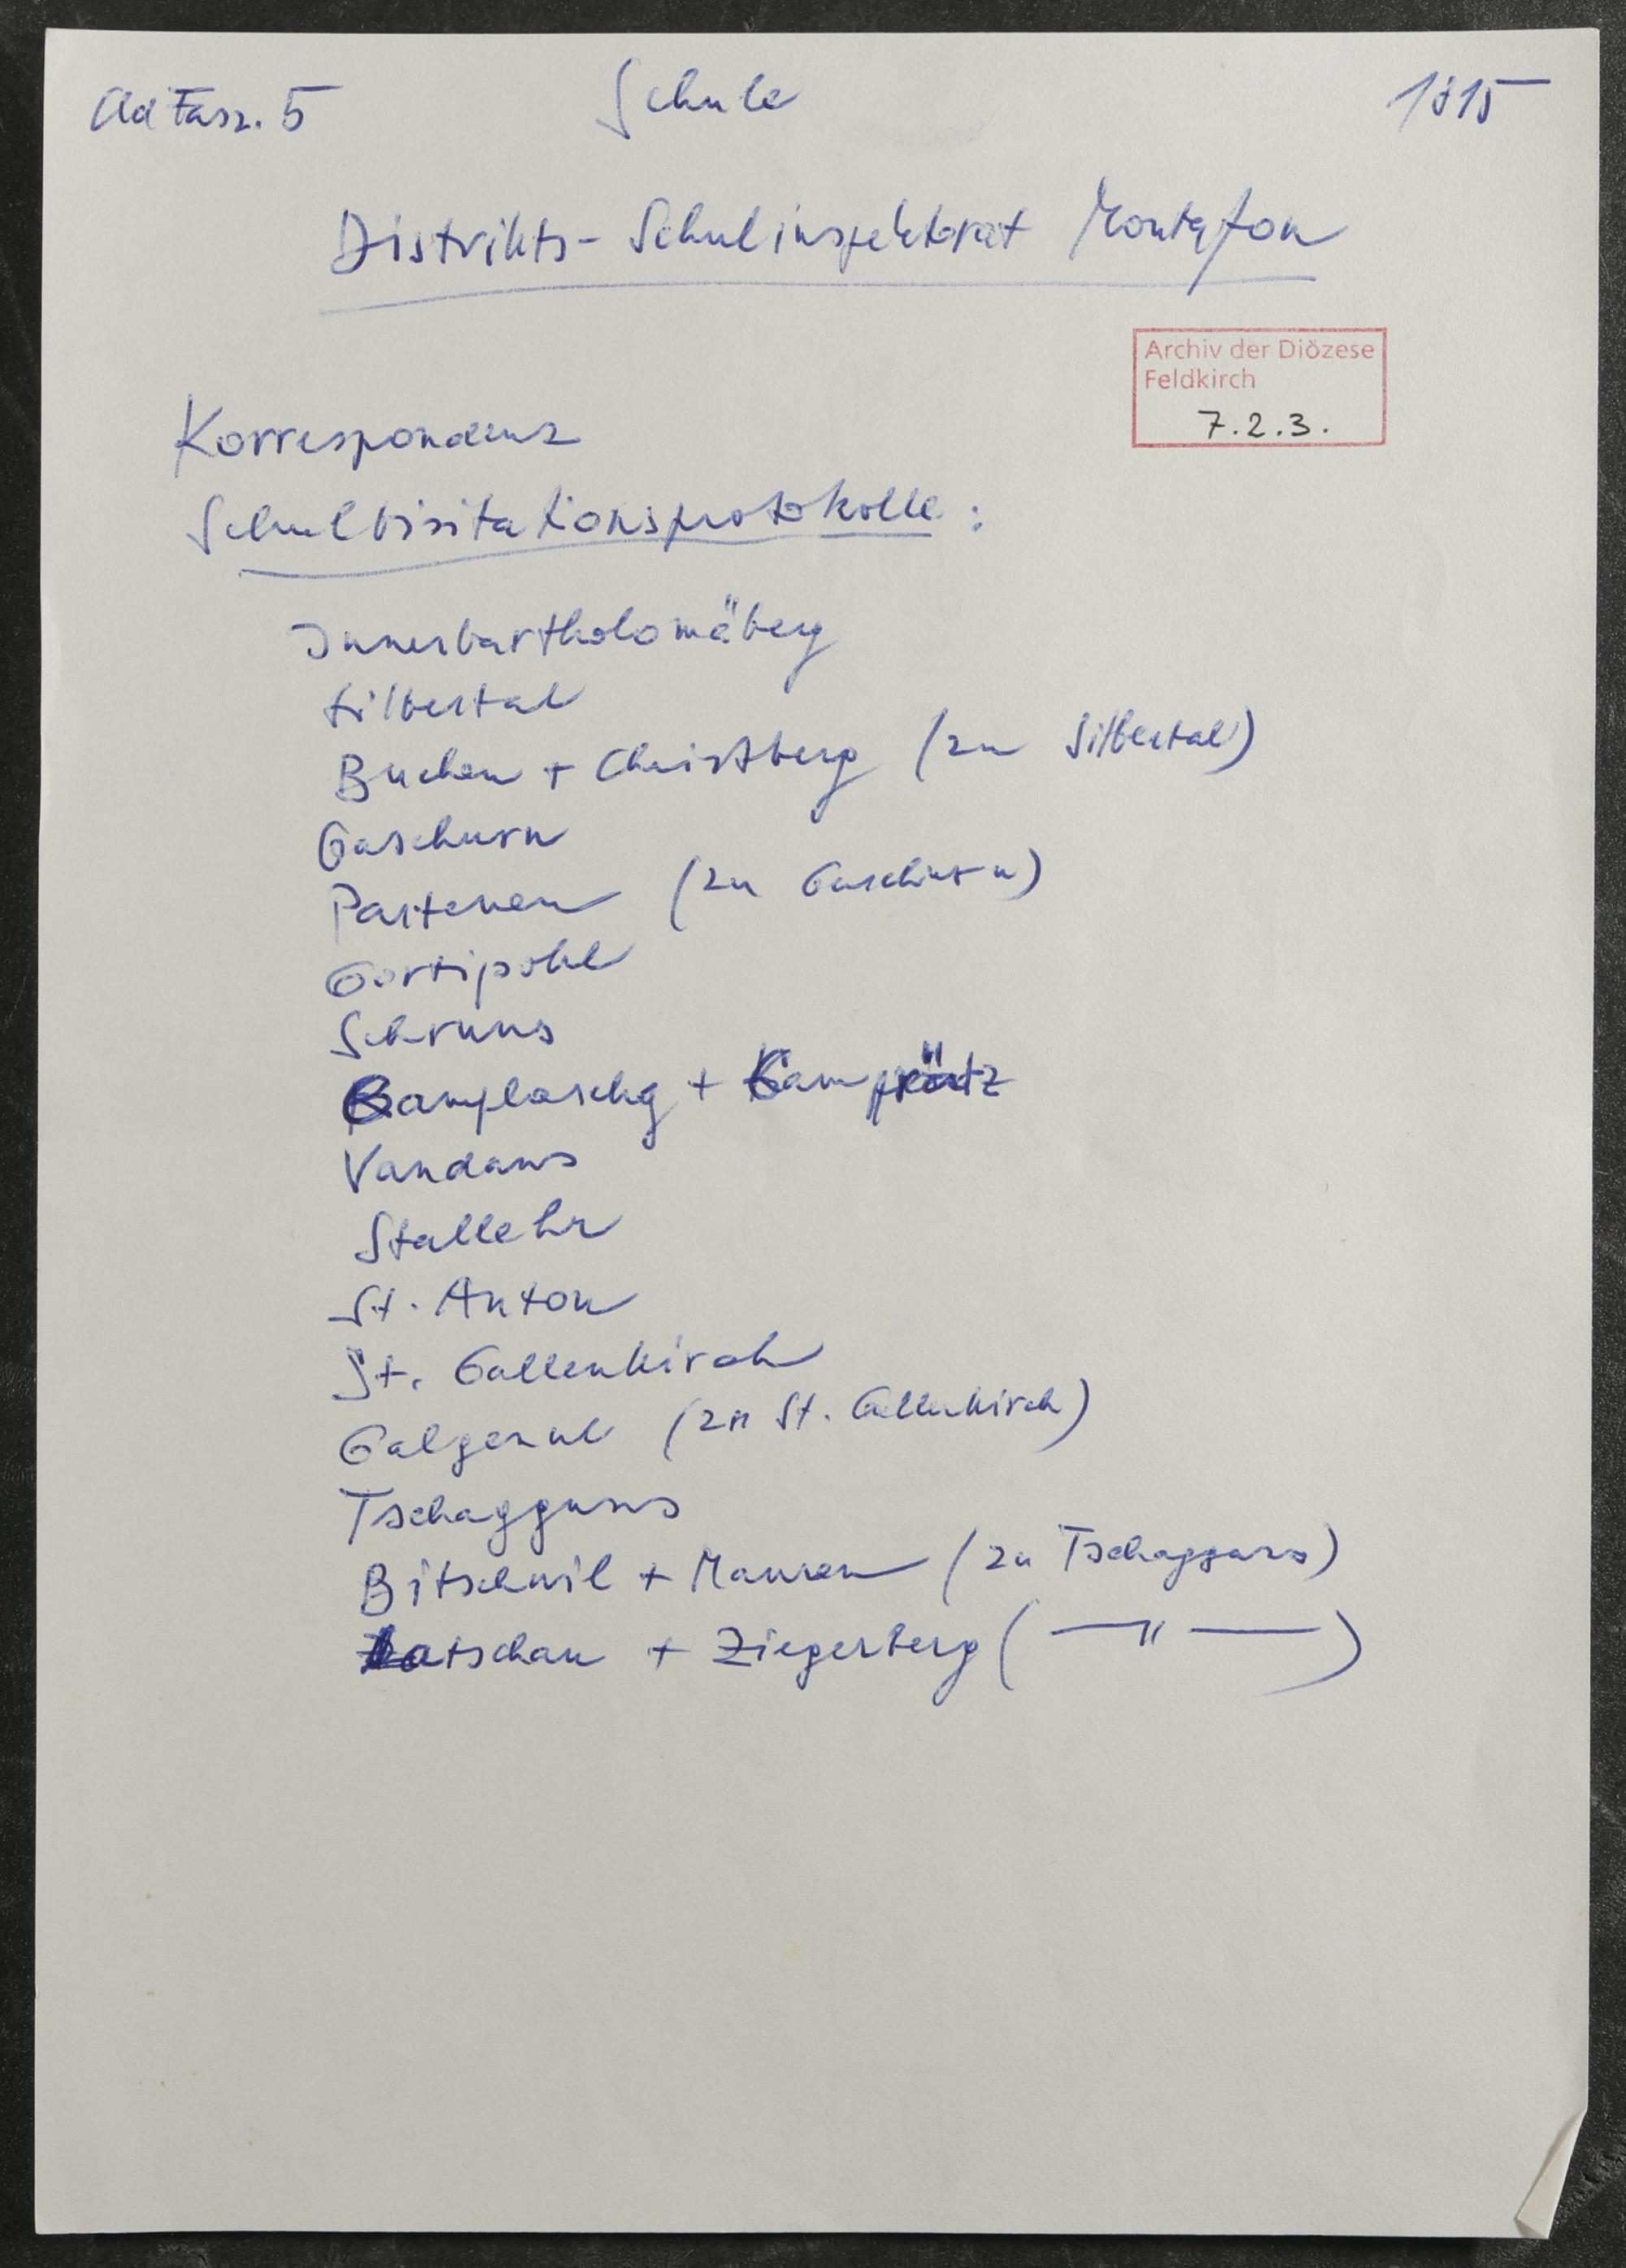 Ad Fasz. 5 Schule 1815
Distrikts-Schulinspektorat Montafon
Archiv der Diözese
Feldkirch
7.2.3.
Korrespondenz
Schulvisitationsprotokolle:
Innerbartholomäberg
Silbertal
Buchen + Christberg (zu Silbertal)
Gaschurn
Partenen (zu Gaschurn)
Gortipohl
Schruns
Gamplaschg +
Vandans
Stallehr
St. Anton
St. Gallenkirch
Galgenul (zu St. Gallenkirch)
Tschagguns
Bitschwil + Mauren (zu Tschagguns)
Latschau + Ziegerberg ( — " — )